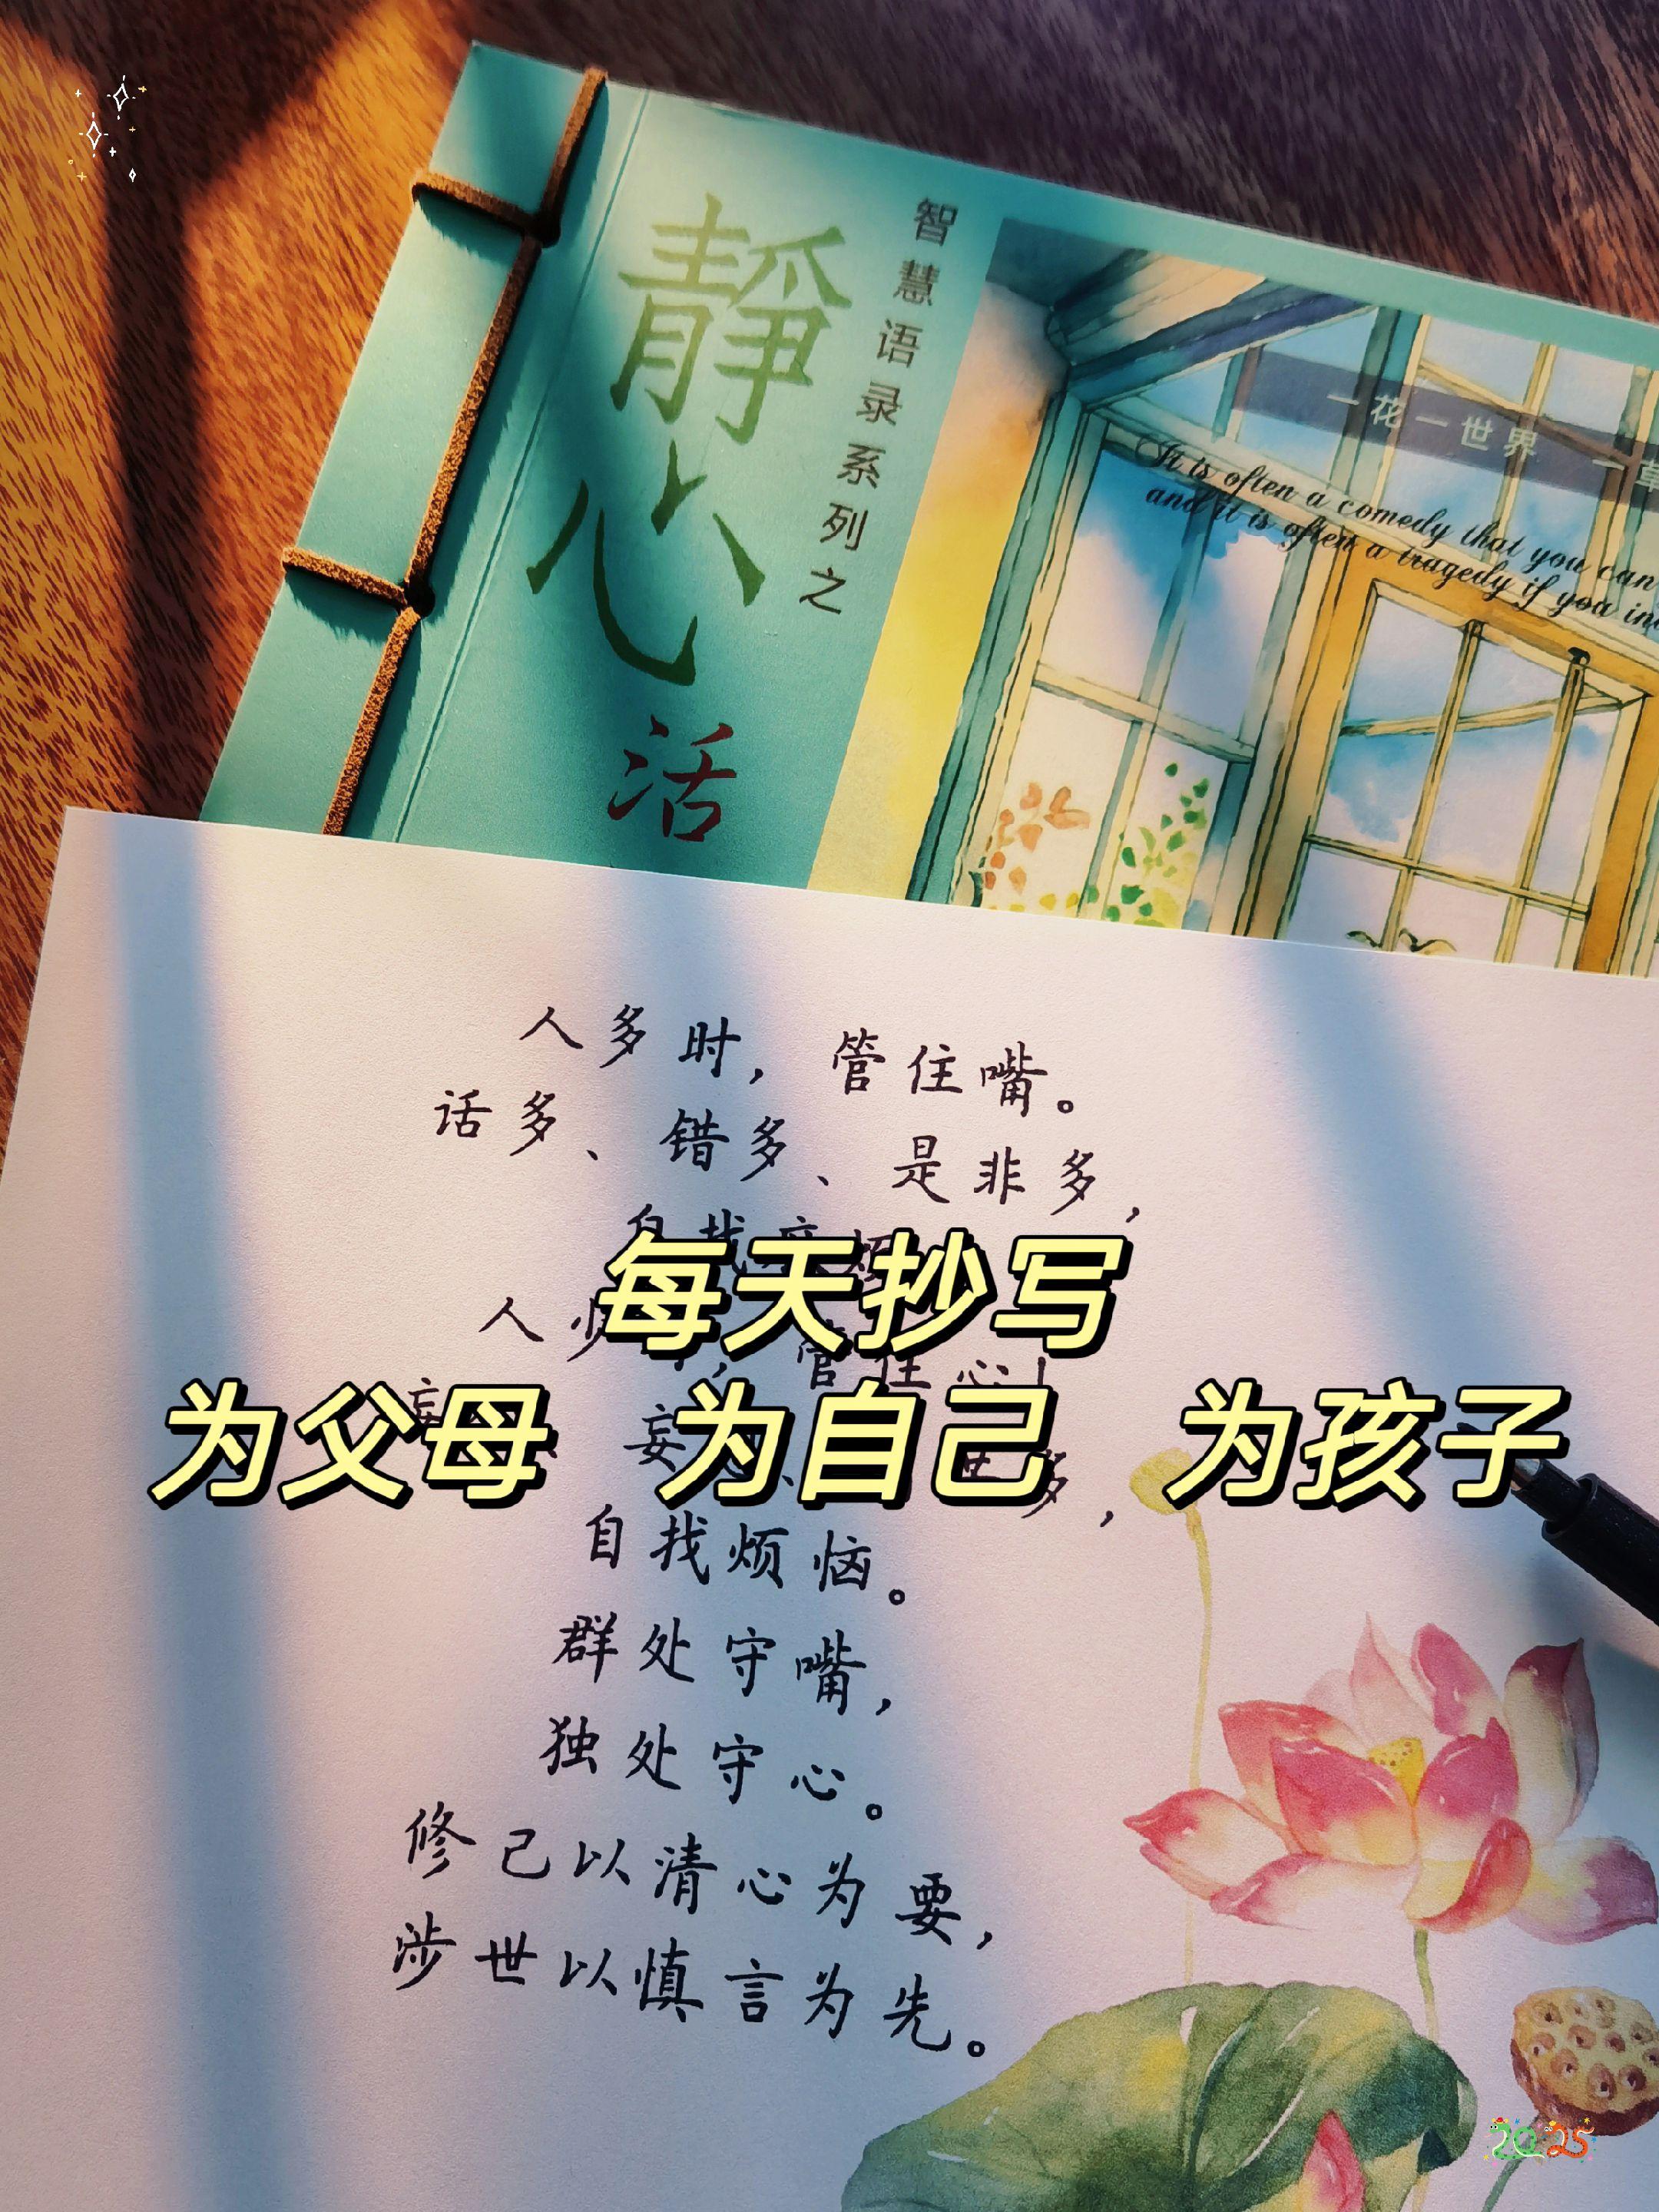 智慧语录系列之
靜心
活
一花一世界 一草
It is often a comedy that you can
and it is often a tragedy if you
人多时，管住嘴。
话多、错多、是非多，
自找麻烦
人少，管住心！
每天抄写
妄 妄 多，
为父母 为自己 为孩子
自找烦恼。
群处守嘴，
独处守心。
修己以清心为要，
涉世以慎言为先。
2025